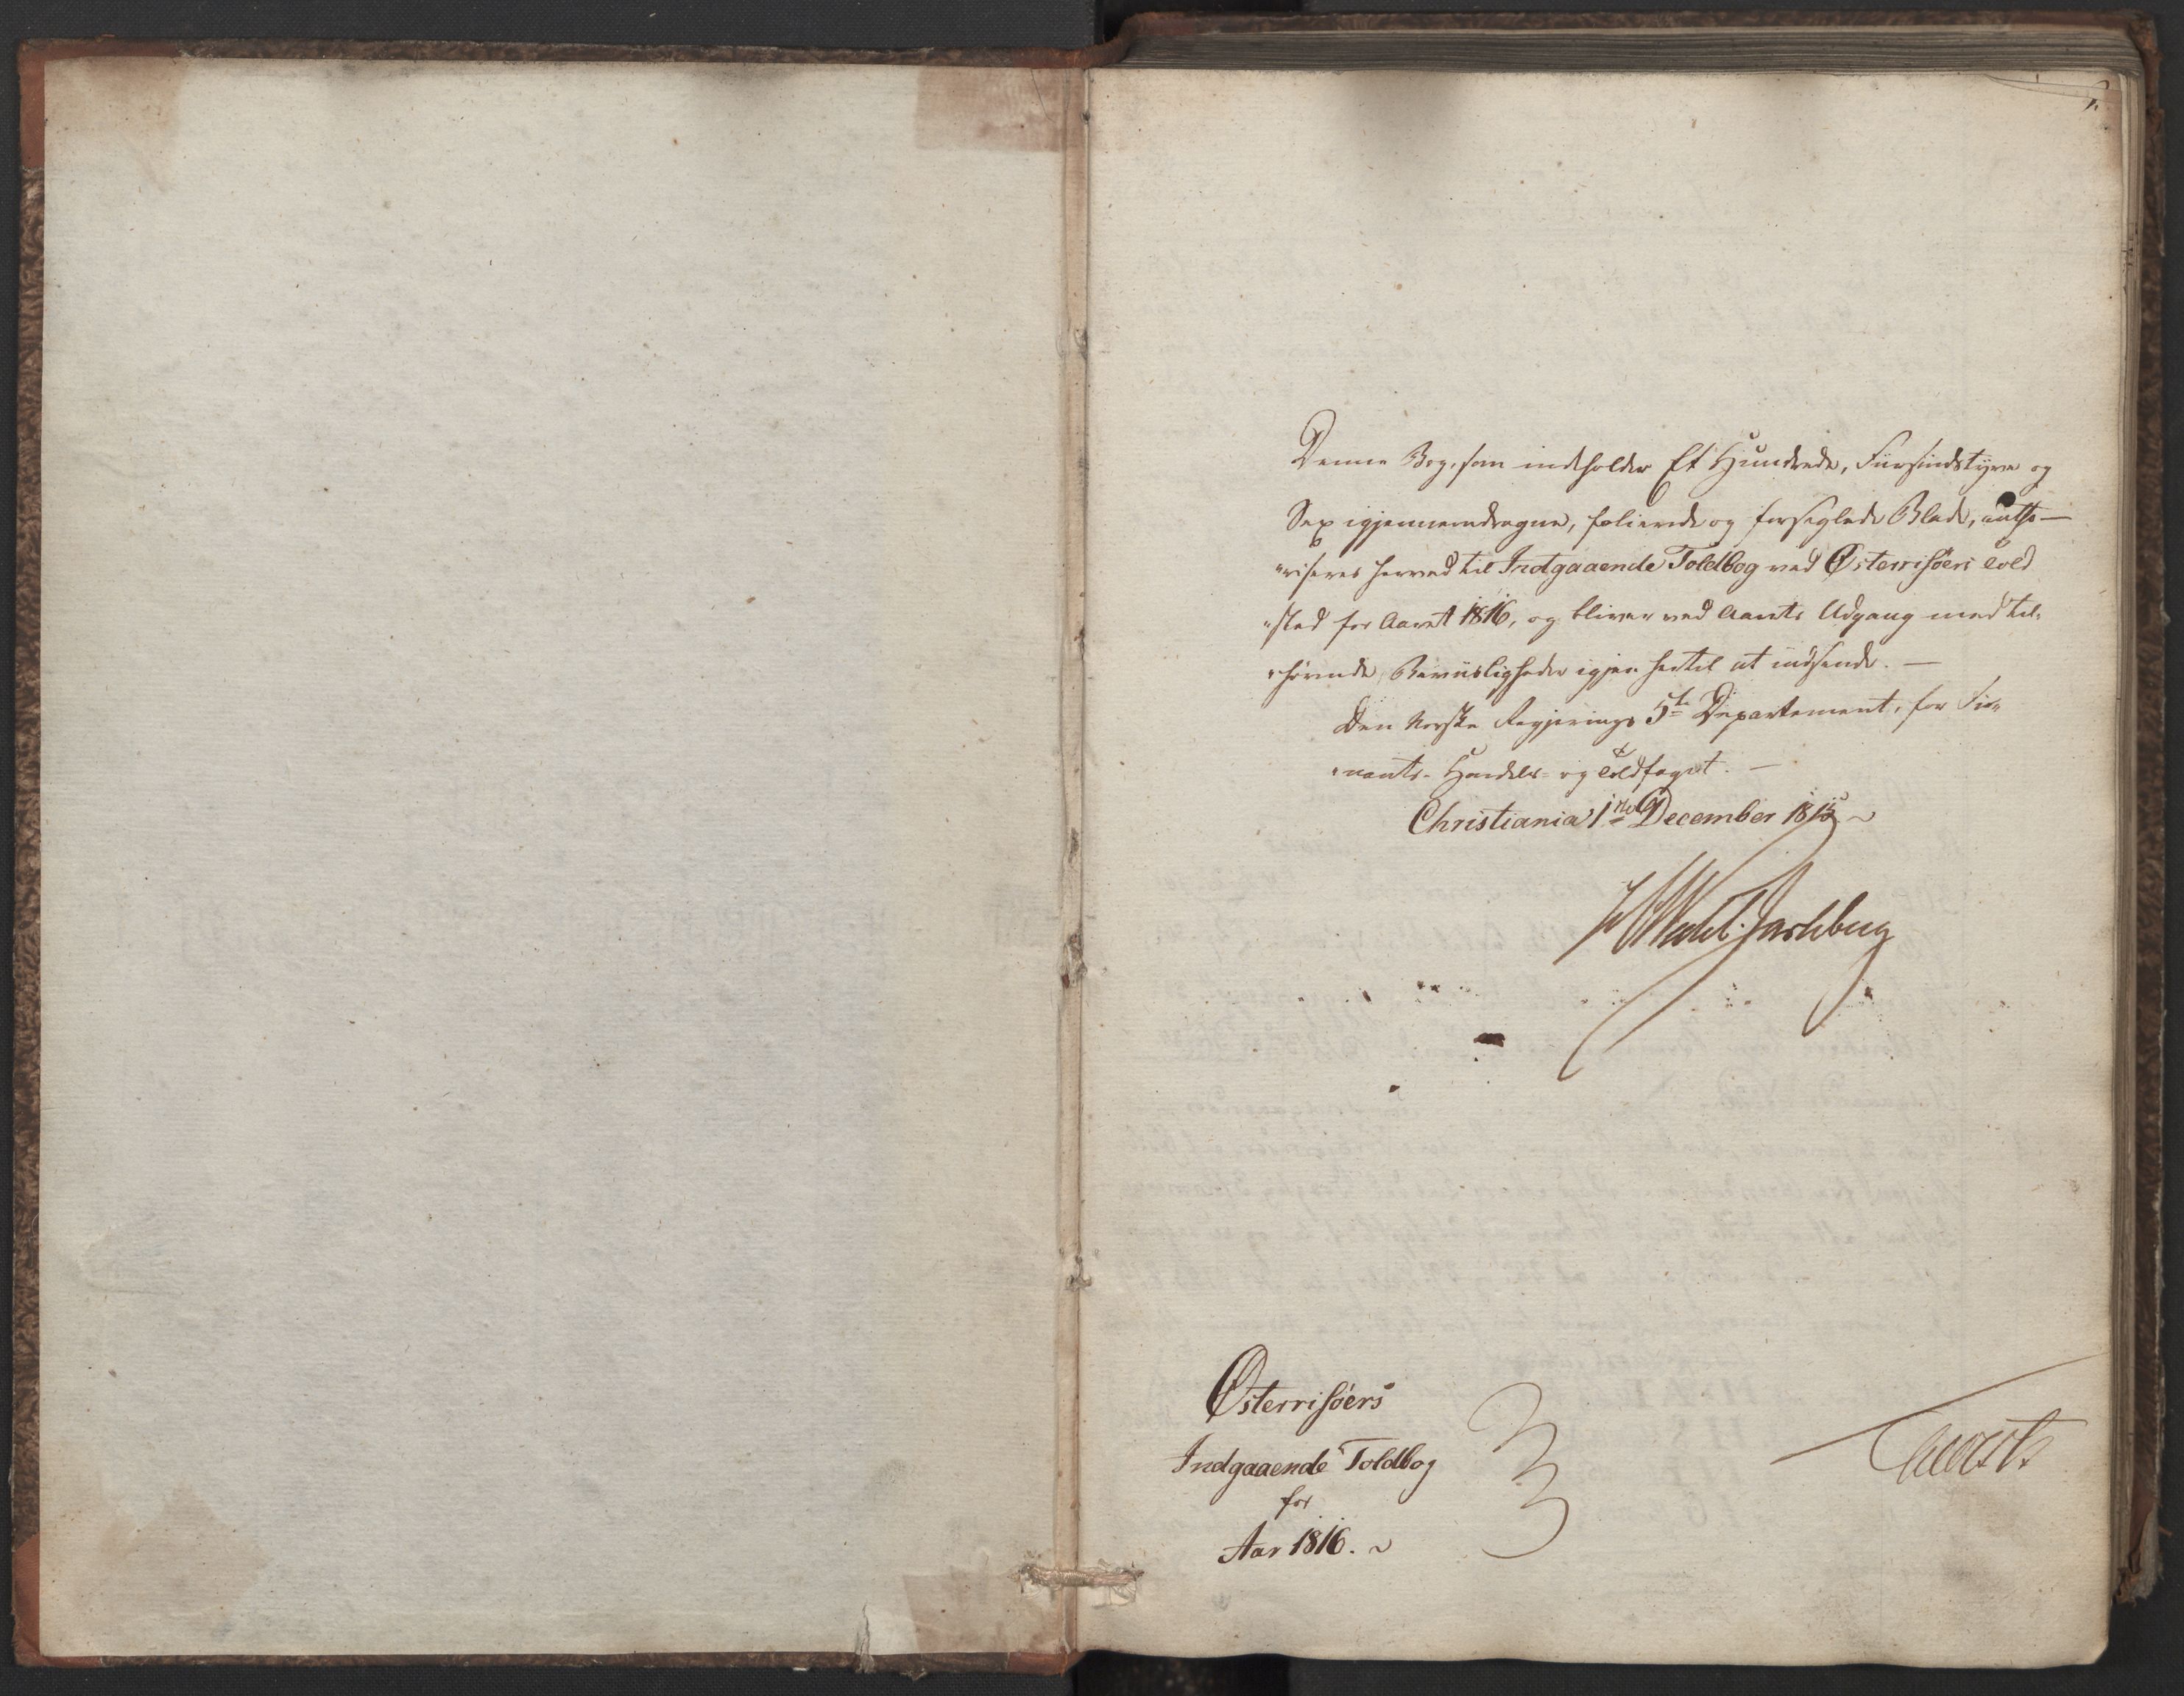 1.
Denne Bog, som indeholder Et Hundrede, Fiirsindstÿve og
Sex igjennemdragne, folierede og forseglede Blade, autho-
"riseres herved til Indgaaende Toldbog ved Østerrisöers Told
"sted for Aaret 1816, og bliver ved Aarets Udgang med til-
"hörende Beviisligheder igjen hertil at indsende. —
Den Norske Regjerings 5te Departement, for Fi-
"nants- Handels- og Toldfaget. —
Christiania 1ste December 1815. ~
Wedel Jarlsberg
Østerrisöers
Indgaaende Toldbog
for
Aar 1816. ~